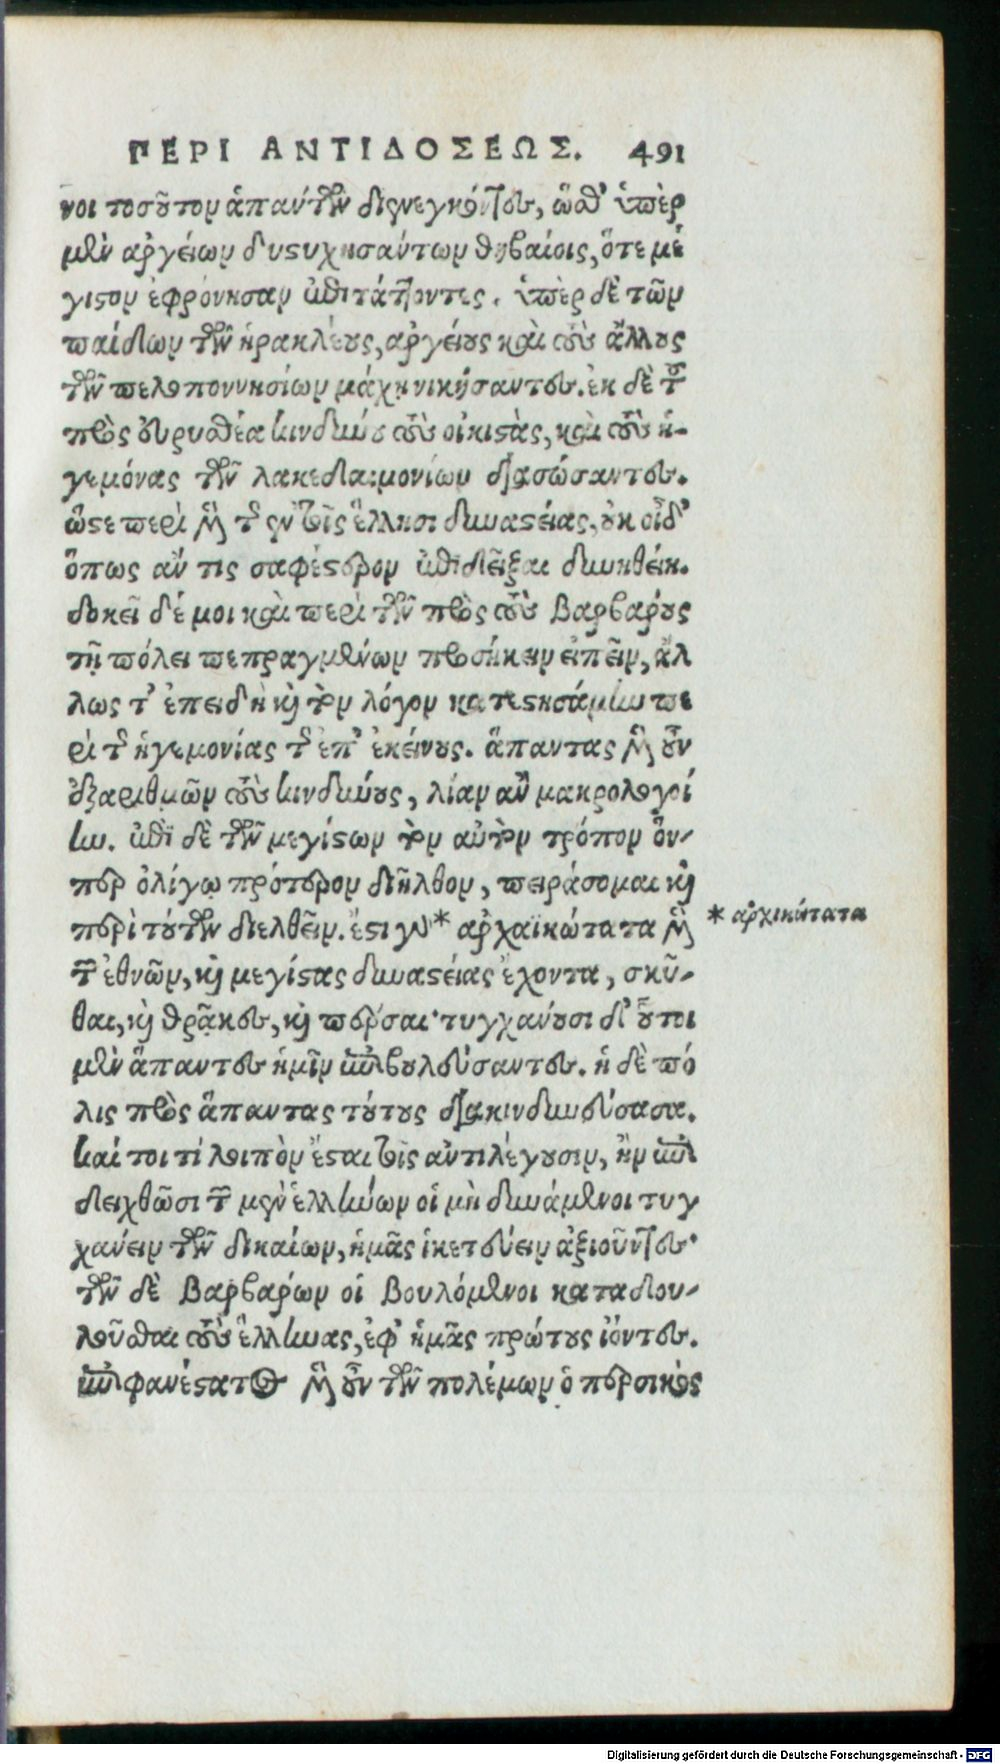 ΠΕΡΙ ΑΝΤΙΔΟΣΕΩΣ. 491
νοι τοσοῦτον ἁπάντων διενεγκόντες, ὥσθ' ὑπὲρ
μὲν ἀργείων δυστυχησάντων θηβαίοις, ὅτε μέ
γιστον ἐφρόνησαν ἐπιτάττοντες. ὑπὲρ δὲ τῶν
παίδων τῶν ἡρακλέους, ἀργείους καὶ τοὺς ἄλλους
τῶν πελοποννησίων μάχῃ νικήσαντες. ἐκ δὲ τῶν
πρὸς εὐρυσθέα κινδύνων τοὺς οἰκιστὰς, καὶ τοὺς ἡ-
γεμόνας τῶν λακεδαιμονίων διασώσαντες.
ὥστε περὶ μὲν τῆς ἐν τοῖς ἕλλησι δυναστείας, οὐκ οἶδ'
ὅπως ἄν τις σαφέστερον ἐπιδεῖξαι δυνηθείη.
δοκεῖ δέ μοι καὶ περὶ τῶν πρὸς τοὺς βαρβάρους
τῇ πόλει πεπραγμένων προσήκειν εἰπεῖν, ἄλ
λως τ' ἐπειδὴ καὶ τὸν λόγον κατεστησάμην πε
ρὶ τῆς ἡγεμονίας τῆς ἐπ' ἐκείνους. ἅπαντας μὲν οὖν
ἐξαριθμῶν τοὺς κινδύνους, λίαν ἂν μακρολογοί
ην. ἐπὶ δὲ τῶν μεγίστων τὸν αὐτὸν τρόπον ὅν-
περ ὀλίγῳ πρότερον διῆλθον, πειράσομαι καὶ
περὶ τούτων διελθεῖν. ἔστι γὰρ * ἀρχαϊκώτατα μὲν
* ἀρχικώτατα
τῶν ἐθνῶν, καὶ μεγίστας δυναστείας ἔχοντα, σκύ-
θαι, καὶ θρᾷκες, καὶ πέρσαι· τυγχάνουσι δ' οὗτοι
μὲν ἅπαντες ἡμῖν ἐπιβουλεύσαντες. ἡ δὲ πό
λις πρὸς ἅπαντας τούτους διακινδυνεύσασα.
καί τοι τί λοιπὸν ἔσται τοῖς ἀντιλέγουσιν, ἢν ἐπι
δειχθῶσι τῶν μὲν ἑλλήνων οἱ μὴ δυνάμενοι τυγ
χάνειν τῶν δικαίων, ἡμᾶς ἱκετεύειν ἀξιοῦντες·
τῶν δὲ βαρβάρων οἱ βουλόμενοι καταδου-
λοῦσθαι τοὺς ἕλληνας, ἐφ' ἡμᾶς πρώτους ἰόντες.
ἐπιφανέστατος μὲν οὖν τῶν πολέμων ὁ περσικὸς
Digitalisierung gefördert durch die Deutsche Forschungsgemeinschaft - DFG